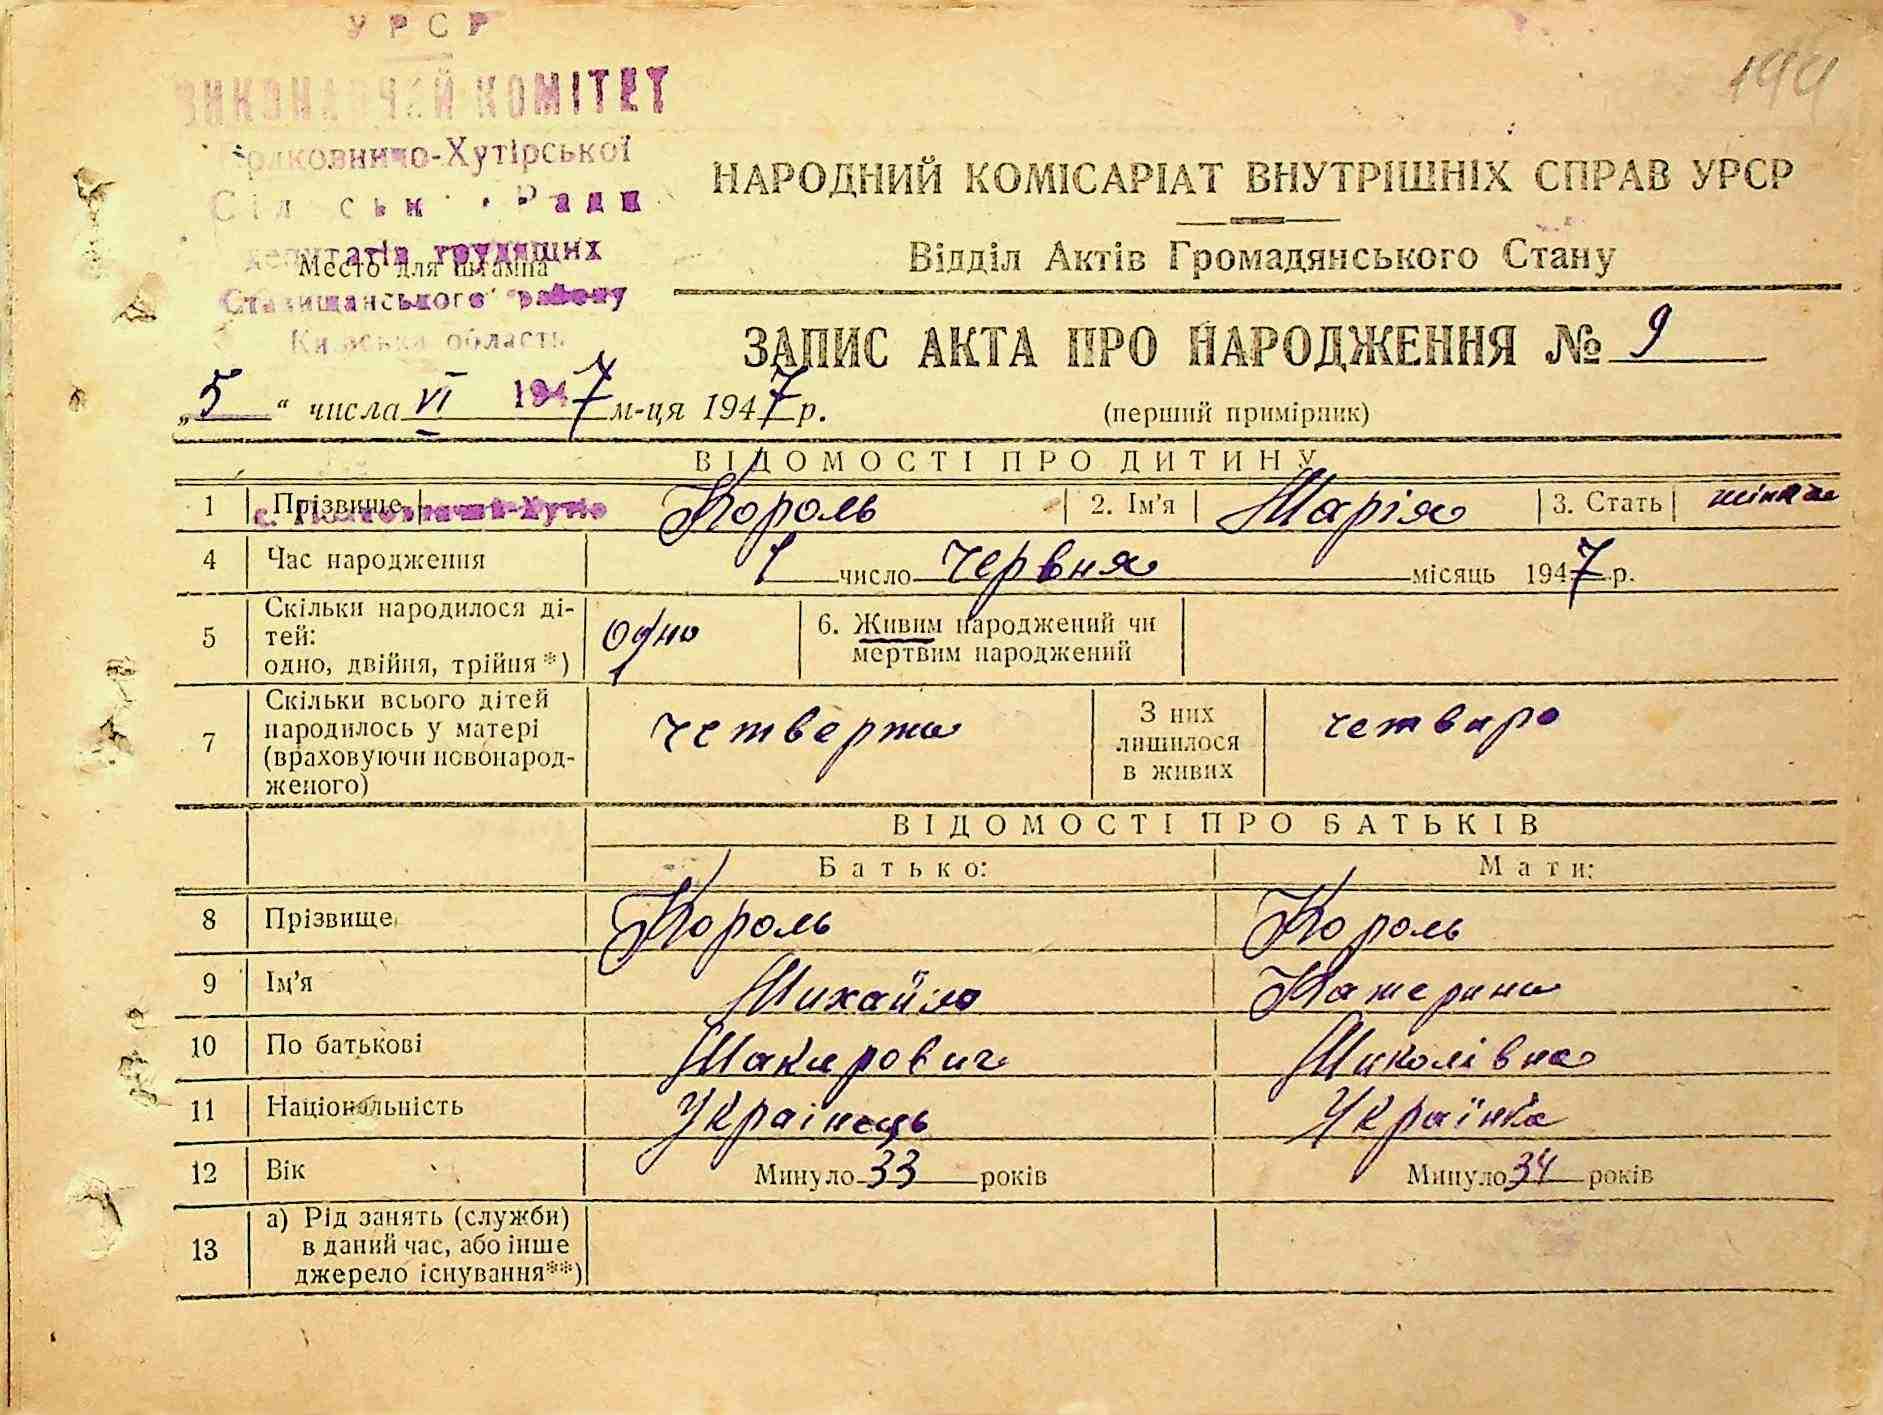 УРСР
ВИКОНАВЧИЙ КОМІТЕТ
Полковничо-Хутірської
Сільської Ради
депутатів трудящих
Место для штампа
Ставищанського району
Київська область
НАРОДНИЙ КОМІСАРІАТ ВНУТРІШНІХ СПРАВ УРСР
Відділ Актів Громадянського Стану
ЗАПИС АКТА ПРО НАРОДЖЕННЯ № 9
„5“ числа VI 1947 м-ця 1947 р.
(перший примірник)
ВІДОМОСТІ ПРО ДИТИНУ
1 Прізвище Король 2. Ім'я Марія 3. Стать
с. Полковничий-Хутір
4 Час народження 1 число червня місяць 1947 р.
5 Скільки народилося ді-
тей:
одно, двійня, трійня*) одно 6. Живим народжений чи
мертвим народжений
7 Скільки всього дітей
народилось у матері
(враховуючи новонарод-
женого) четверта З них
лишилося
в живих четверо
ВІДОМОСТІ ПРО БАТЬКІВ
Батько: Мати:
8 Прізвище Король Король
9 Ім'я Михайло Катерина
10 По батькові Макарович Миколівна
11 Національність Українець Українка
12 Вік Минуло 33 років Минуло 34 років
13 а) Рід занять (служби)
в даний час, або інше
джерело існування**)